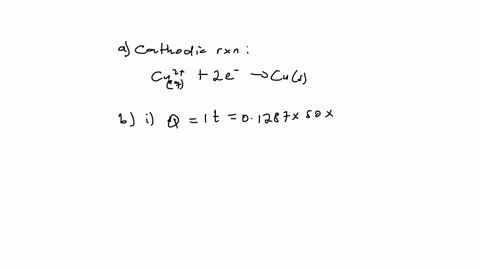 a) Cathodic rxn :
Cu²⁺(aq) + 2e⁻ → Cu(s)
b) i) Q = It = 0.1287 x 50 x